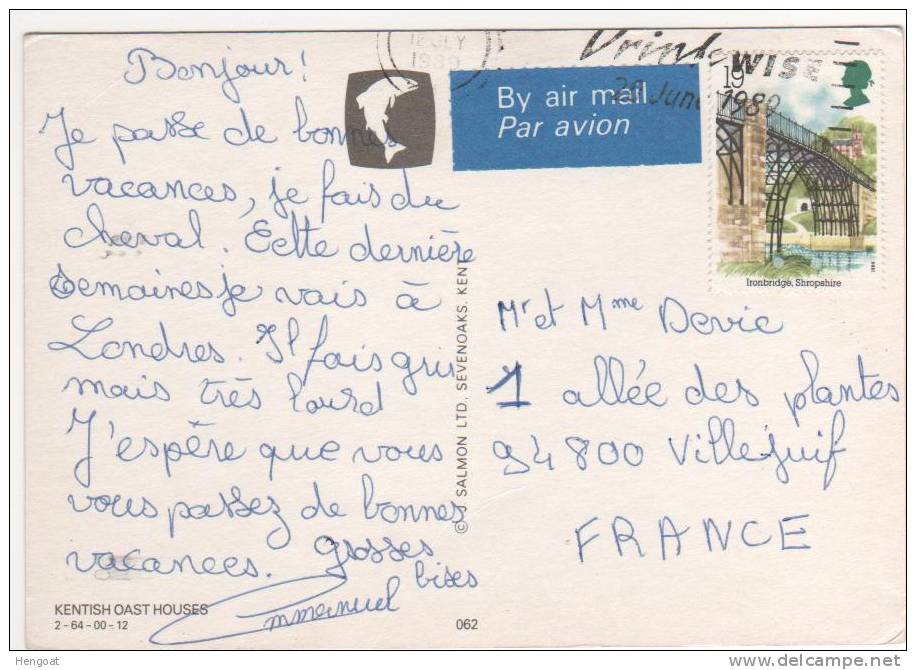 Bonjour!
Je passe de bonnes
vacances, je fais du
cheval. Cette dernière
semaines je vais à
Londres. Il fais gris
mais très lourd
J'espère que vous
vous passez de bonnes
vacances. Grosses
bises
Emmanuel
KENTISH OAST HOUSES
2-64-00-12
062
© J SALMON LTD. SEVENOAKS. KENT
12 JLY
1989
By air mail
Par avion
28 June
1989
19
Ironbridge, Shropshire
1989
Mr et Mme Devic
1 allée des plantes
94800 Villejuif
FRANCE
Hengoat
www.delcampe.net